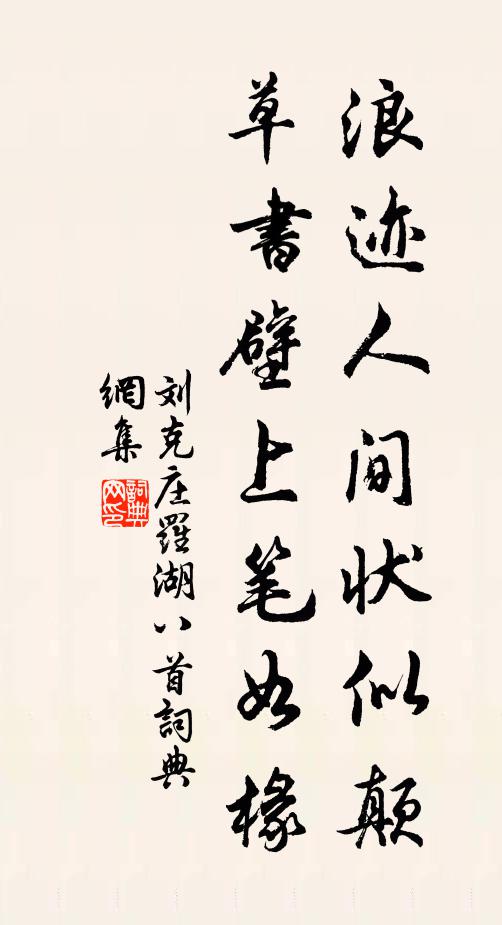 浪迹人间状似颠
草書壁上笔如椽
刘克庄羅湖八首詞典
網集
詞典
网印